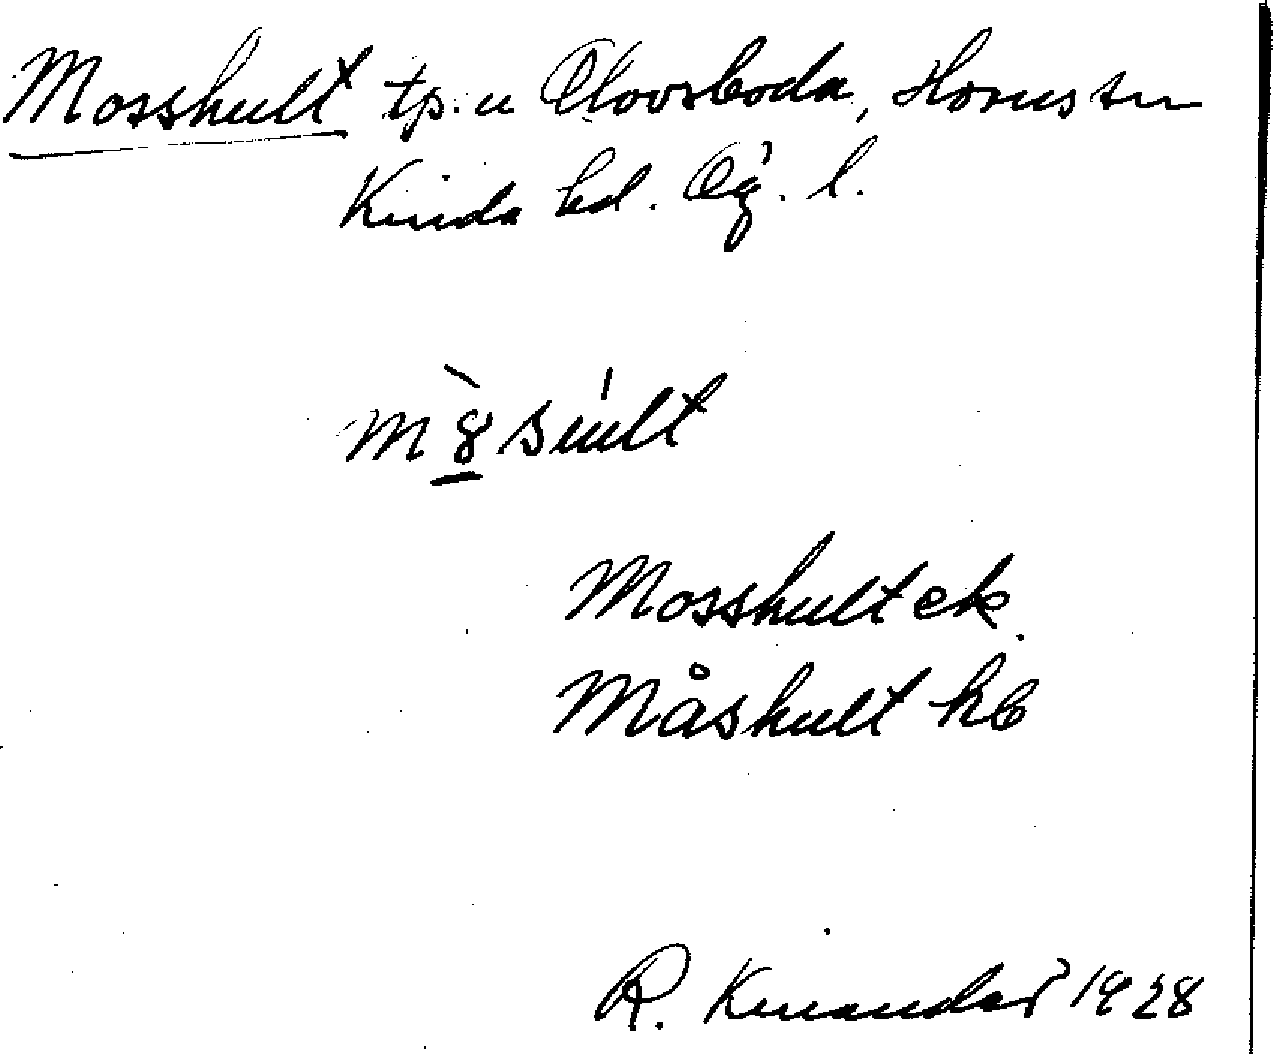 Mosshult tp. u Olovsboda, Horns sn
Kinda hd. Ög. l.
m8̲̀súlt
Mosshult ek.
Måshult kb
R. Kinander 1928